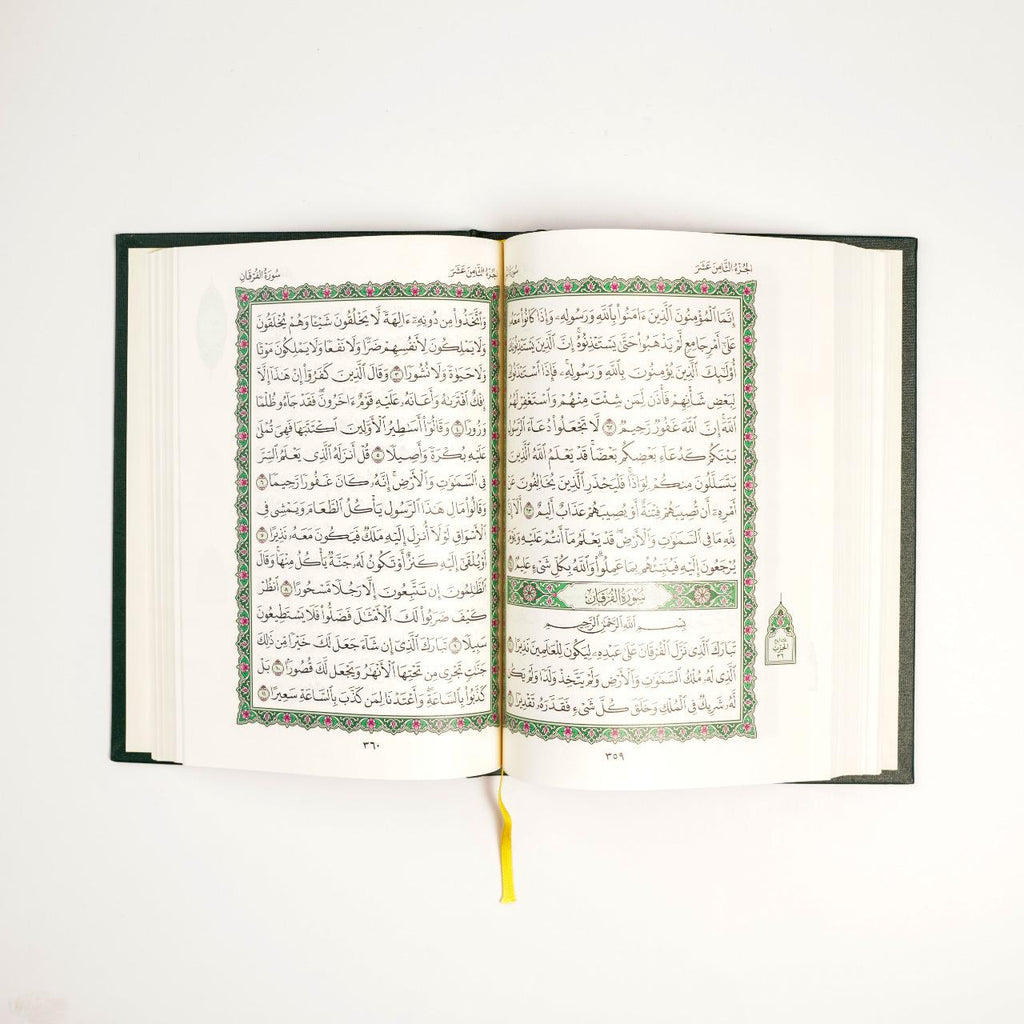 الجُزءُ الثَّامِنَ عَشَرَ
إِنَّمَا ٱلْمُؤْمِنُونَ ٱلَّذِينَ ءَامَنُوا۟ بِٱللَّهِ وَرَسُولِهِۦ وَإِذَا كَانُوا۟ مَعَهُۥ
عَلَىٰٓ أَمْرٍ جَامِعٍ لَّمْ يَذْهَبُوا۟ حَتَّىٰ يَسْتَـْٔذِنُوهُ ۚ إِنَّ ٱلَّذِينَ يَسْتَـْٔذِنُونَكَ
أُو۟لَـٰٓئِكَ ٱلَّذِينَ يُؤْمِنُونَ بِٱللَّهِ وَرَسُولِهِۦ ۚ فَإِذَا ٱسْتَـْٔذَنُوكَ
لِبَعْضِ شَأْنِهِمْ فَأْذَن لِّمَن شِئْتَ مِنْهُمْ وَٱسْتَغْفِرْ لَهُمُ
ٱللَّهَ ۚ إِنَّ ٱللَّهَ غَفُورٌ رَّحِيمٌ ٦٢ لَّا تَجْعَلُوا۟ دُعَآءَ ٱلرَّسُولِ
بَيْنَكُمْ كَدُعَآءِ بَعْضِكُم بَعْضًا ۚ قَدْ يَعْلَمُ ٱللَّهُ ٱلَّذِينَ
يَتَسَلَّلُونَ مِنكُمْ لِوَاذًا ۚ فَلْيَحْذَرِ ٱلَّذِينَ يُخَالِفُونَ عَنْ
أَمْرِهِۦٓ أَن تُصِيبَهُمْ فِتْنَةٌ أَوْ يُصِيبَهُمْ عَذَابٌ أَلِيمٌ ٦٣ أَلَآ إِنَّ
لِلَّهِ مَا فِى ٱلسَّمَـٰوَٰتِ وَٱلْأَرْضِ ۖ قَدْ يَعْلَمُ مَآ أَنتُمْ عَلَيْهِ وَيَوْمَ
يُرْجَعُونَ إِلَيْهِ فَيُنَبِّئُهُم بِمَا عَمِلُوا۟ ۗ وَٱللَّهُ بِكُلِّ شَىْءٍ عَلِيمٌ
سُورَةُ الفُرْقَانِ
بِسْمِ ٱللَّهِ ٱلرَّحْمَـٰنِ ٱلرَّحِيمِ
تَبَارَكَ ٱلَّذِى نَزَّلَ ٱلْفُرْقَانَ عَلَىٰ عَبْدِهِۦ لِيَكُونَ لِلْعَـٰلَمِينَ نَذِيرًا
ٱلَّذِى لَهُۥ مُلْكُ ٱلسَّمَـٰوَٰتِ وَٱلْأَرْضِ وَلَمْ يَتَّخِذْ وَلَدًا وَلَمْ يَكُن
لَّهُۥ شَرِيكٌ فِى ٱلْمُلْكِ وَخَلَقَ كُلَّ شَىْءٍ فَقَدَّرَهُۥ تَقْدِيرًا
الحزب
٣٦
٣٥٩
الجُزءُ الثَّامِنَ عَشَرَ
سُورَةُ الفُرْقَانِ
وَٱتَّخَذُوا۟ مِن دُونِهِۦٓ ءَالِهَةً لَّا يَخْلُقُونَ شَيْـًٔا وَهُمْ يُخْلَقُونَ
وَلَا يَمْلِكُونَ لِأَنفُسِهِمْ ضَرًّا وَلَا نَفْعًا وَلَا يَمْلِكُونَ مَوْتًا
وَلَا حَيَوٰةً وَلَا نُشُورًا ٣ وَقَالَ ٱلَّذِينَ كَفَرُوٓا۟ إِنْ هَـٰذَآ إِلَّآ
إِفْكٌ ٱفْتَرَىٰهُ وَأَعَانَهُۥ عَلَيْهِ قَوْمٌ ءَاخَرُونَ ۖ فَقَدْ جَآءُو ظُلْمًا
وَزُورًا ٤ وَقَالُوٓا۟ أَسَـٰطِيرُ ٱلْأَوَّلِينَ ٱكْتَتَبَهَا فَهِىَ تُمْلَىٰ
عَلَيْهِ بُكْرَةً وَأَصِيلًا ٥ قُلْ أَنزَلَهُ ٱلَّذِى يَعْلَمُ ٱلسِّرَّ
فِى ٱلسَّمَـٰوَٰتِ وَٱلْأَرْضِ ۚ إِنَّهُۥ كَانَ غَفُورًا رَّحِيمًا ٦
وَقَالُوا۟ مَالِ هَـٰذَا ٱلرَّسُولِ يَأْكُلُ ٱلطَّعَامَ وَيَمْشِى فِى
ٱلْأَسْوَاقِ ۙ لَوْلَآ أُنزِلَ إِلَيْهِ مَلَكٌ فَيَكُونَ مَعَهُۥ نَذِيرًا ٧
أَوْ يُلْقَىٰٓ إِلَيْهِ كَنزٌ أَوْ تَكُونُ لَهُۥ جَنَّةٌ يَأْكُلُ مِنْهَا ۚ وَقَالَ
ٱلظَّـٰلِمُونَ إِن تَتَّبِعُونَ إِلَّا رَجُلًا مَّسْحُورًا ٨ ٱنظُرْ
كَيْفَ ضَرَبُوا۟ لَكَ ٱلْأَمْثَـٰلَ فَضَلُّوا۟ فَلَا يَسْتَطِيعُونَ
سَبِيلًا ٩ تَبَارَكَ ٱلَّذِىٓ إِن شَآءَ جَعَلَ لَكَ خَيْرًا مِّن ذَٰلِكَ
جَنَّـٰتٍ تَجْرِى مِن تَحْتِهَا ٱلْأَنْهَـٰرُ وَيَجْعَل لَّكَ قُصُورًۢا ١٠ بَلْ
كَذَّبُوا۟ بِٱلسَّاعَةِ ۖ وَأَعْتَدْنَا لِمَن كَذَّبَ بِٱلسَّاعَةِ سَعِيرًا ١١
٣٦٠